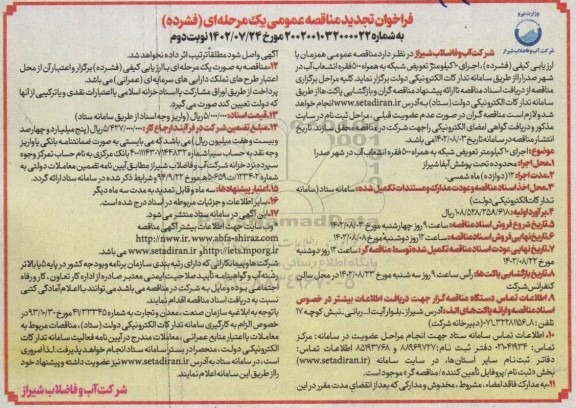 وزارت نیرو
شرکت آب و فاضلاب شیراز
فراخوان تجدید مناقصه عمومی یک مرحله‌ای (فشرده)
به شماره ۲۰۰۲۰۰۱۰۳۲۰۰۰۰۲۲ مورخ ۱۴۰۲/۰۷/۲۴ نوبت دوم
شرکت آب و فاضلاب شیراز در نظر دارد مناقصه عمومی همزمان با
ارزیابی کیفی (فشرده)، اجرای ۱۰ کیلومتر تعویض شبکه به همراه ۵۰۰ فقره انشعاب آب در
شهر صدرا را از طریق سامانه تدارکات الکترونیکی دولت برگزار نماید. کلیه مراحل برگزاری
مناقصه از دریافت اسناد مناقصه تا ارائه پیشنهاد مناقصه گران و بازگشایی پاکت ها از طریق
سامانه تدارکات الکترونیکی دولت (ستاد) به آدرس www.setadiran.ir انجام خواهد
شد و لازم است مناقصه گران در صورت عدم عضویت قبلی، مراحل ثبت نام در سایت
مذکور و دریافت گواهی امضای الکترونیکی را جهت شرکت در مناقصه محقق سازند. تاریخ
انتشار مناقصه در سامانه تاریخ ۱۴۰۲/۰۸/۰۳ می باشد.
موضوع: اجرای ۱۰ کیلومتر تعویض شبکه به همراه ۵۰۰ فقره انشعاب آب در شهر صدرا
۱.محل اجرا: محدوده تحت پوشش آبفا شیراز
۲.مدت اجرا: ۱۲ (دوازده) ماه شمسی
۳.محل اخذ اسناد مناقصه و عودت مدارک و مستندات تکمیل شده: سامانه ستاد (سامانه
تدارکات الکترونیکی دولت)
۴.برآورد اولیه: ۱۰۸/۵۲۸/۲۵۸/۶۷۸ ریال
۵.تاریخ شروع فروش اسناد مناقصه: ساعت ۹ روز چهارشنبه مورخ ۱۴۰۲/۰۸/۰۳
۶.تاریخ نهایی فروش اسناد مناقصه: ساعت ۱۳ روز دوشنبه مورخ ۱۴۰۲/۰۸/۰۸
۷.تاریخ نهایی عودت اسناد مناقصه تکمیل شده توسط مناقصه گر: ساعت ۱۳ روز دوشنبه
مورخ ۱۴۰۲/۰۸/۲۲
۸.تاریخ بازگشایی پاکت ها: رأس ساعت ۹ روز سه شنبه مورخ ۱۴۰۲/۰۸/۲۳ در محل سالن
کنفرانس شرکت
۹.اطلاعات تماس دستگاه مناقصه گزار جهت دریافت اطلاعات بیشتر در خصوص
اسناد مناقصه و ارائه پاکت های الف: آدرس شیراز- بلوار آیت ا... ربانی، نبش کوچه ۱۷
تلفن: ۰۷۱۳۲۲۸۱۵۶۰۸ (دبیرخانه شرکت)
۱۰. اطلاعات تماس سامانه ستاد جهت انجام مراحل عضویت در سامانه: مرکز
تماس: ۴۱۹۳۴-۰۲۱ دفتر ثبت نام: ۸۸۹۶۹۷۳۷ و ۸۵۱۹۳۷۶۸ (اطلاعات تماس
دفاتر ثبت نام سایر استان ها، در سایت سامانه (www.setadiran.ir)
بخش «ثبت نام / پروفایل تأمین کننده / مناقصه گر» موجود است.
۱۱.به مدارک فاقد امضاء، مشروط، مخدوش و مدارکی که بعد از انقضای مدت مقرر در این
آگهی واصل شود مطلقاً ترتیب اثر داده نخواهد شد.
۱۲.مناقصه به صورت یک مرحله ای با ارزیابی کیفی (فشرده) برگزار و اعتبار آن از محل
اعتبار طرح های تملک دارایی های سرمایه ای (عمرانی) می باشد.
پرداخت از طریق اوراق مشارکت یا اسناد خزانه اسلامی یا اعتبارات نقدی و یا ترکیبی از آنها
که دولت تعیین کند صورت می گیرد.
۱۳.قیمت اسناد: ۵/۰۰۰/۰۰۰ ریال (واریز وجه اسناد از طریق سامانه ستاد)
۱۴.مبلغ تضمین شرکت در فرآیند ارجاع کار: ۵/۴۲۷/۰۰۰/۰۰۰ ریال (پنج میلیارد و چهارصد
و بیست و هفت میلیون ریال) می باشد که می بایستی به صورت ضمانتنامه بانکی یا واریز
وجه نقد به حساب سپرده شماره بانک مرکزی به نام حساب تمرکز وجوه
سپرده نزد خزانه شرکت آب و فاضلاب شیراز مطابق آیین نامه تضمین معاملات دولتی به
شماره ۱۲۳۴۰۲/ت۵۰۶۵۹هـ مورخ ۹۴/۹/۲۲ و شرایط ذکر شده در سامانه ستاد ارائه گردد.
۱۵.اعتبار پیشنهادها: سه ماه و قابل تمدید به مدت سه ماه دیگر
۱۶.سایر اطلاعات و جزئیات مربوطه در اسناد درج شده است.
۱۷. این آگهی در سامانه ستاد منتشر می شود.
وب سایت جهت اطلاعات بیشتر آگهی مناقصه
http://nww.ir, www.abfa-shiraz.com
http://iets.mporg.ir و www.setadiran.ir می باشد.
شرکت ها و پیمانکارانی که دارای رتبه بندی سازمان برنامه و بودجه کشور در پایه ۵ یا بالاتر
رشته آب و گواهینامه تأیید صلاحیت ایمنی معتبر صادره از اداره کار تعاون، کار و رفاه
اجتماعی بوده و مایل به شرکت در مناقصه می باشد می توانند با اعلام آمادگی کتبی
نسبت به دریافت اسناد مناقصه اقدام نمایند.
با توجه به ابلاغیه سازمان صنعت، معدن و تجارت به شماره ۴۷۲۳۳۴۵ مورخ ۹۳/۱۰/۳۰ در
خصوص الزام به کارگیری سامانه تدارکات الکترونیکی دولت (ستاد)، مناقصات مربوط به
معاملات با اعتبار منابع عمرانی، معاملات مندرج در آیین نامه فعالیت سامانه تدارکات
الکترونیکی دولت، منحصراً در بستر سامانه www.setadiran.ir انجام خواهد پذیرفت. لذا ضروری
است، در سامانه ستاد به آدرس www.setadiran.ir ثبت نام نموده و آمادگی خود
را از طریق این سامانه اعلام نمایند.
شرکت آب و فاضلاب شیراز